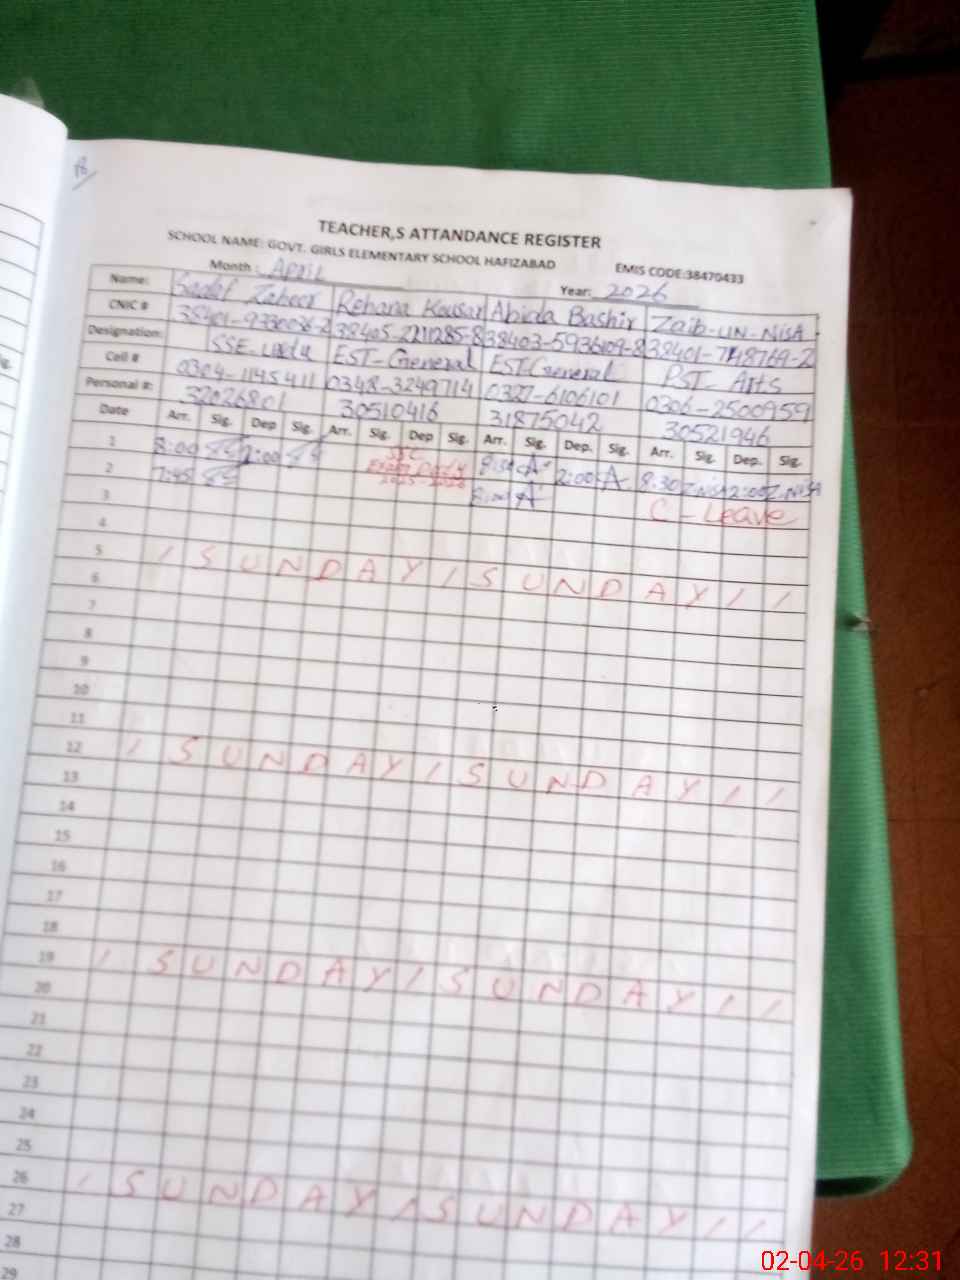 TEACHER,S ATTANDANCE REGISTER
SCHOOL NAME: GOVT. GIRLS ELEMENTARY SCHOOL HAFIZABAD EMIS CODE:38470433
Month: April Year: 2026
Name: Sadaf Zaheer Rehana Kousar Abida Bashir Zaib-un-Nisa
CNIC # 38405-2210285-8 38403-5936109-8
Designation: SSE-Urdu EST-General EST-General PST-Arts
Cell # 0304-1145411 0348-3249714 0327-6106101 0306-2500959
Personal #: 32026801 30510416 31875042 30521946
Date Arr. Sig. Dep Sig. Arr. Sig. Dep Sig. Arr. Sig. Dep. Sig. Arr. Sig. Dep. Sig.
1 8:00 2:00 8:30 A 2:00 A 8:30 Z-Nisa 2:00 Z-Nisa
2 7:45 A C-Leave
3
4
5 / SUNDAY / SUNDAY / /
6
7
8
9
10
11
12 / SUNDAY / SUNDAY / /
13
14
15
16
17
18
19 / SUNDAY / SUNDAY / /
20
21
22
23
24
25
26 / SUNDAY / SUNDAY / /
27
28
29
02-04-26 12:31